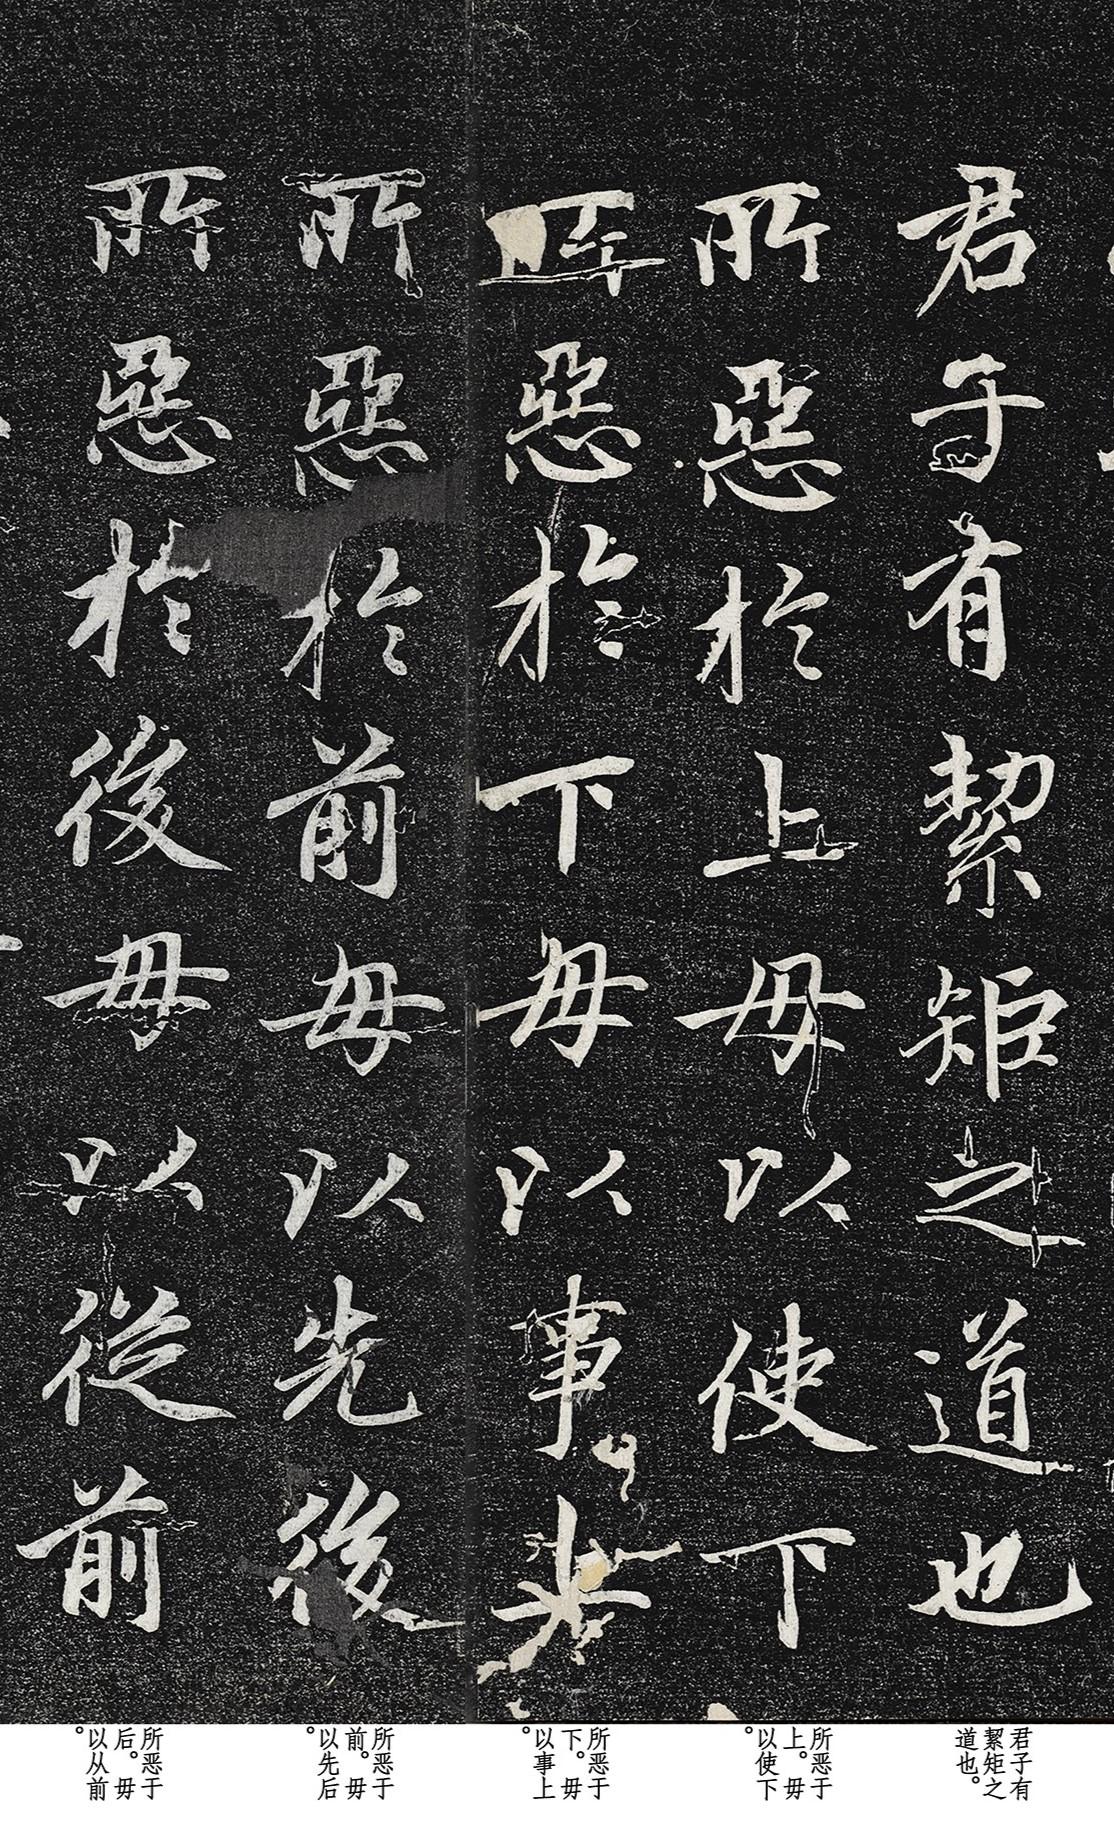 君子有絜矩之道也
所惡於上毋以使下
所惡於下毋以事上
所惡於前毋以先後
所惡於後毋以從前
君子有
絜矩之
道也。
所恶于
上。毋
以使下
。
所恶于
下。毋
以事上
。
所恶于
前。毋
以先后
。
所恶于
后。毋
以从前
。